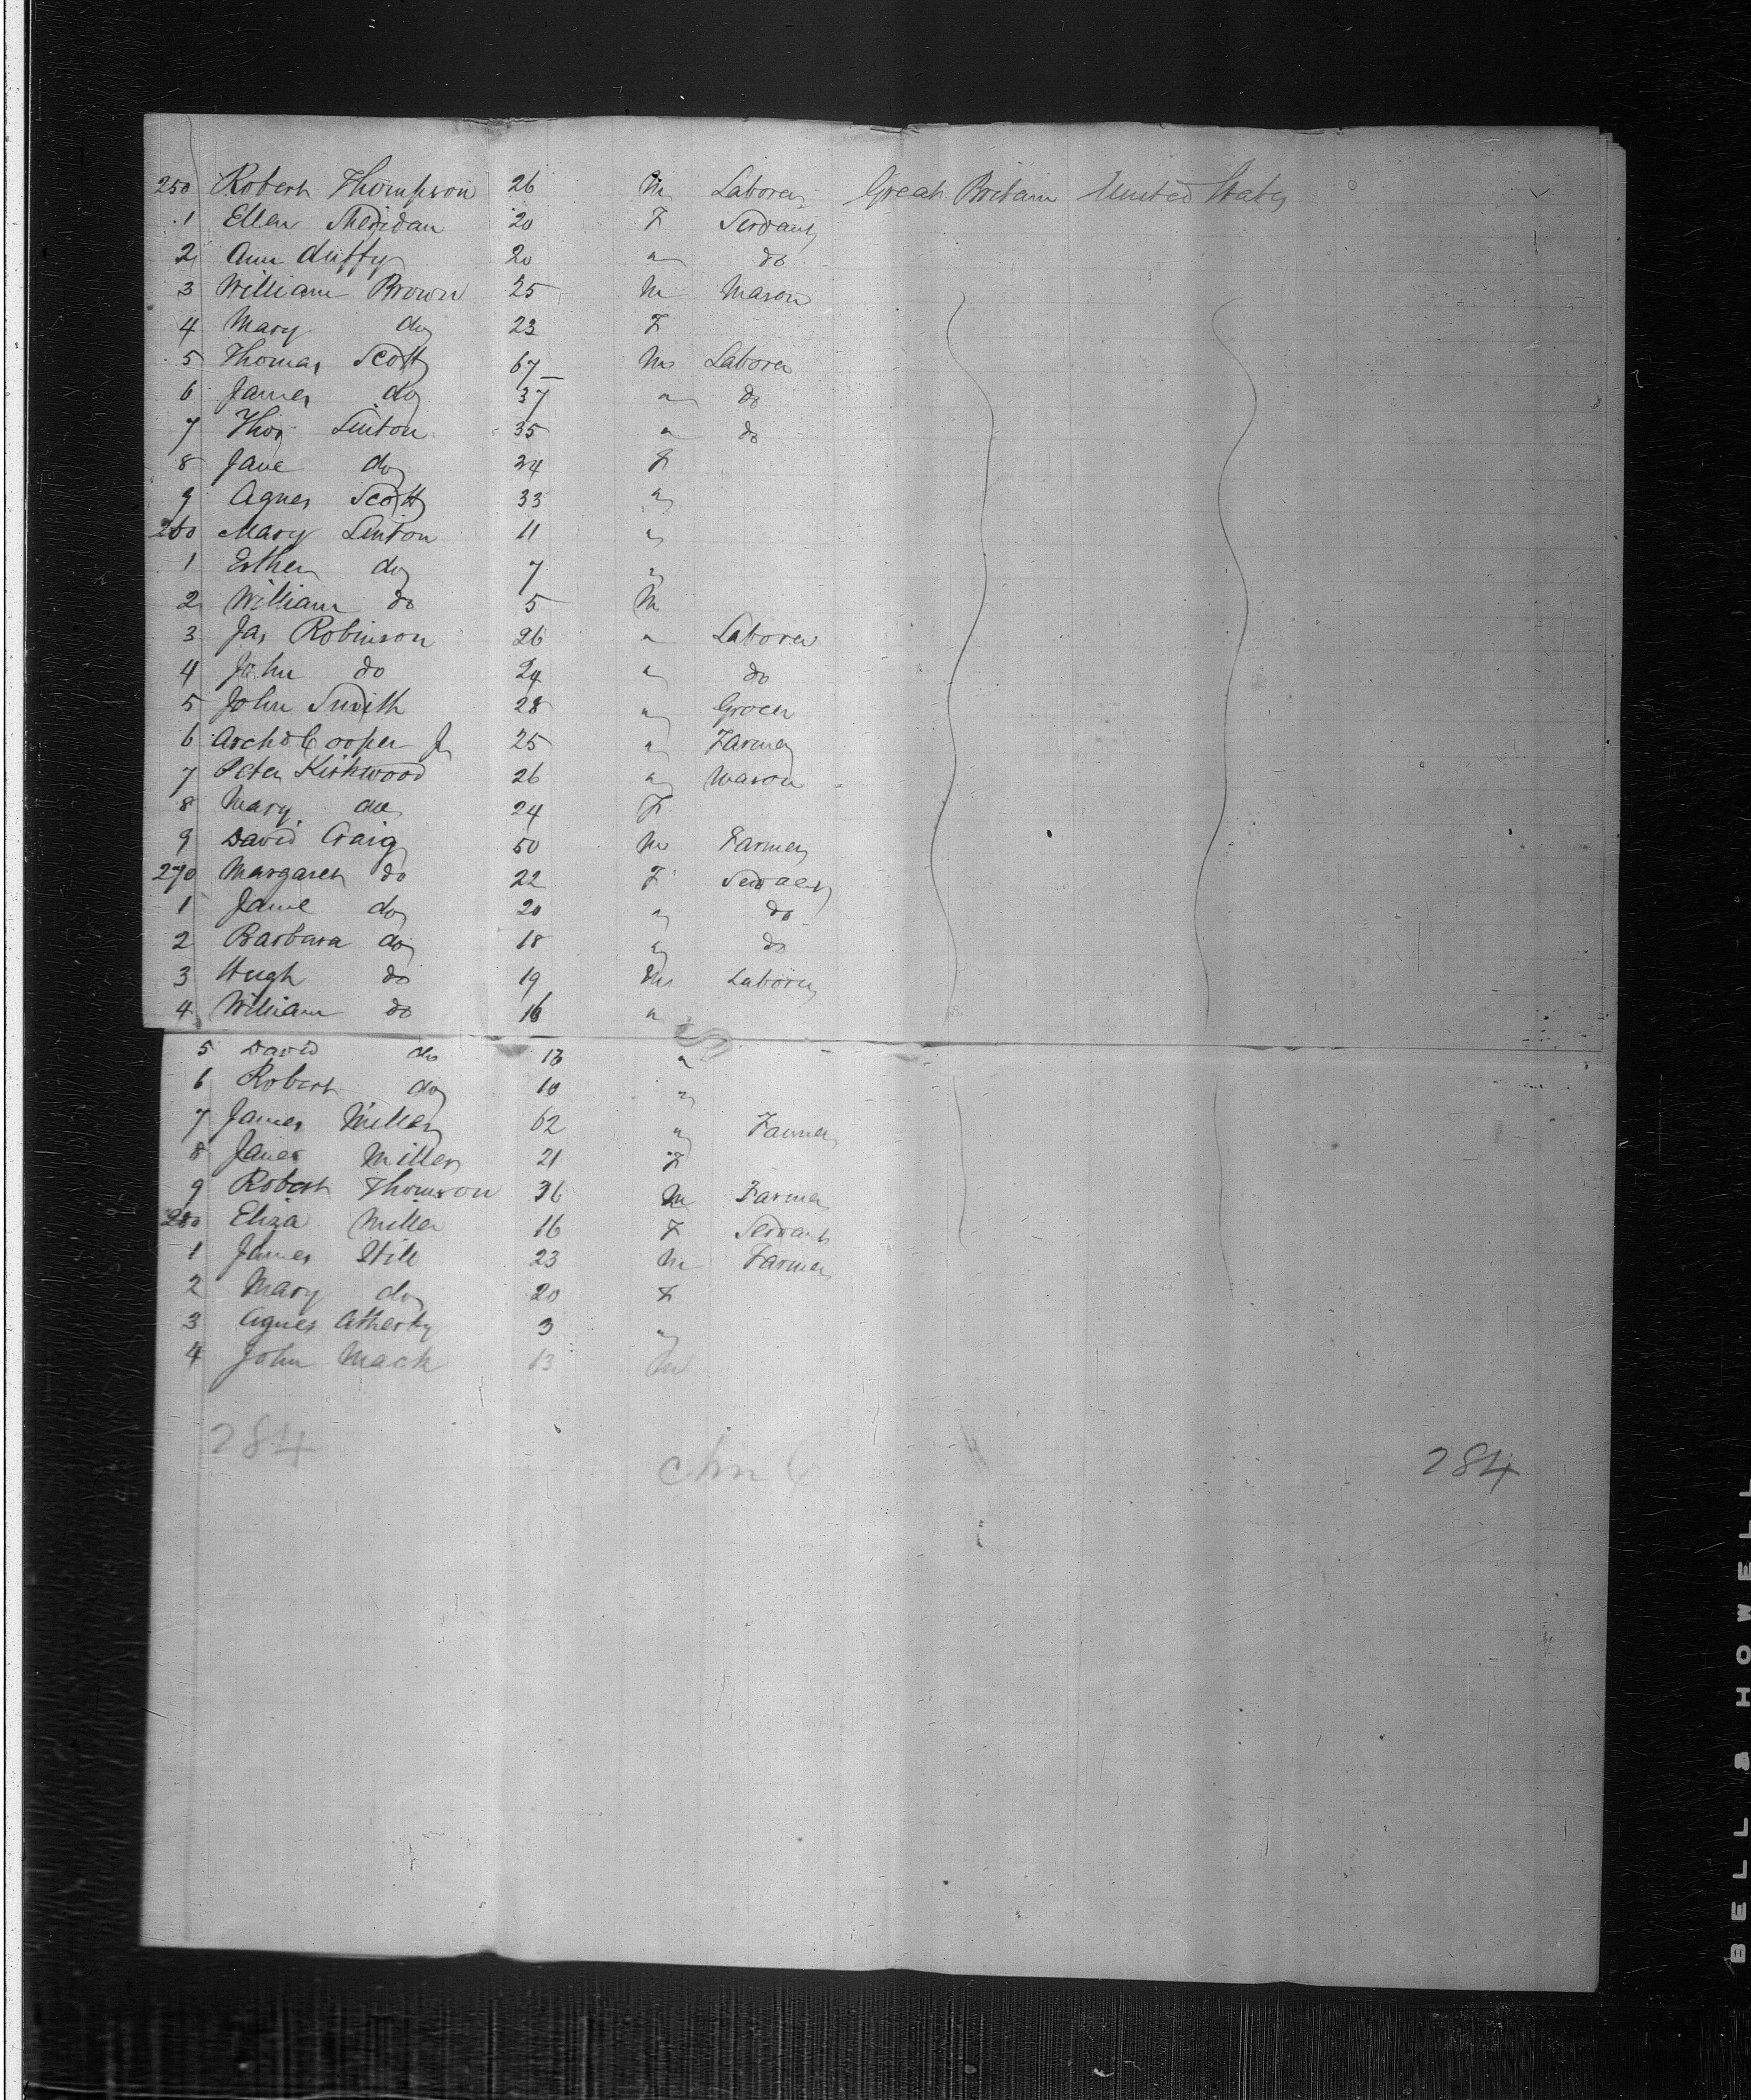 250 Robert Thompson 26 M Laborer Great Britain United States
1 Ellen Sheridan 20 F Servant
2 Ann Duffy 20 " do
3 William Brown 25 M Mason
4 Mary do 23 F
5 Thomas Scott 67 M Laborer
6 James do 37 " do
7 Thos Linton 35 " do
8 Jane do 34 F
9 Agnes Scott 33 "
260 Mary Linton 11 "
1 Esther do 7 "
2 William do 5 M
3 Jas Robinson 26 " Laborer
4 John do 24 " do
5 John Smith 28 " Grocer
6 Archd Cooper Jr 25 " Farmer
7 Peter Kirkwood 26 " Mason
8 Mary do 24 F
9 David Craig 50 M Farmer
270 Margaret do 22 F Servant
1 Jane do 20 " do
2 Barbara do 18 " do
3 Hugh do 19 M Laborer
4 William do 16 "
5 David do 13 "
6 Robert do 10 "
7 James Miller 62 " Farmer
8 Janes Miller 21 F
9 Robert Thomson 36 M Farmer
280 Eliza Miller 16 F Servant
1 James Hill 23 M Farmer
2 Mary do 20 F
3 Agnes Atherby 3 "
4 John Mack 13 M
284
284
BELL & HOWELL